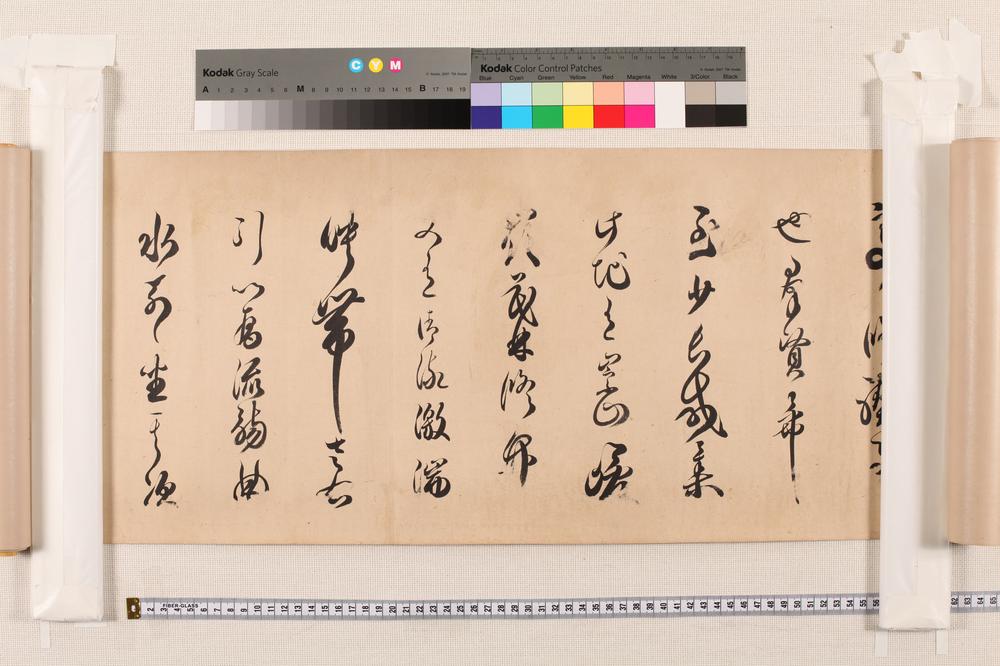 Kodak Gray Scale
C Y M
A 1 2 3 4 5 6 M 8 9 10 11 12 13 14 15 B 17 18 19
Kodak Color Control Patches
Blue Cyan Green Yellow Red Magenta White 3/Color Black
脩禊事
也羣賢畢
至少長咸集
此地有崇山峻
領茂林脩竹
又有清流激湍
映帶左右
引以為流觴曲
水列坐其次
FIBER-GLASS